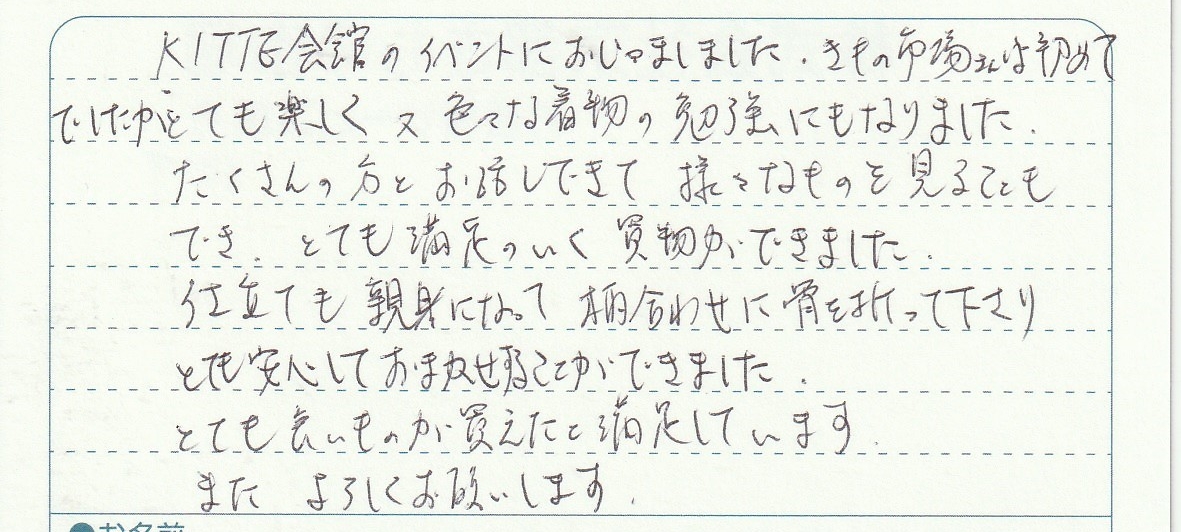 KITTE会館のイベントにおじゃましました．きもの市場さんは初めて
でしたがとても楽しく 又 色々な着物の勉強にもなりました．
たくさんの方とお話しできて 様々なものを見ることも
でき．とても満足のいく 買物ができました．
仕立ても親身になって 柄合わせに骨を折って下さり
とても安心しておまかせすることができました．
とても良いものが買えたと満足しています．
また よろしくお願いします．
●お名前